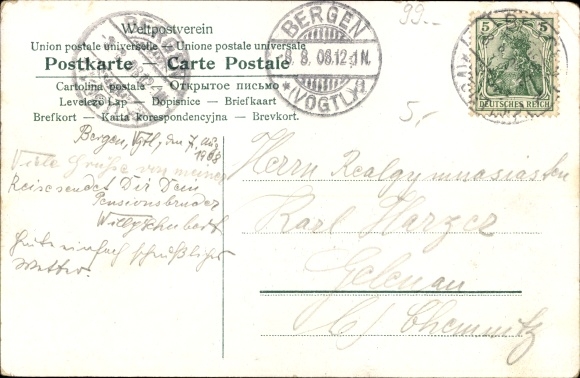 Weltpostverein
Union postale universelle — Unione postale universale
Postkarte — Carte Postale
Cartolina postale — Открытое письмо
Levelező Lap — Dopisnice — Briefkaart
Brefkort — Karta korespondencyjna — Brevkort.
BERGEN
8.8.08.12-1N.
*(VOGTL.)
BERGEN
5 5
DEUTSCHES REICH
99.-
5,-
Bergen, Vgtl., den 7. Aug.
1908
Viele Grüße von meiner
Reise sendet Dir Dein
Pensionsbruder
Willy Schubert
Heute einfach scheußliches
Wetter.
Herrn Realgymnasiasten
Karl Harzer
Gelenau
b/ Chemnitz